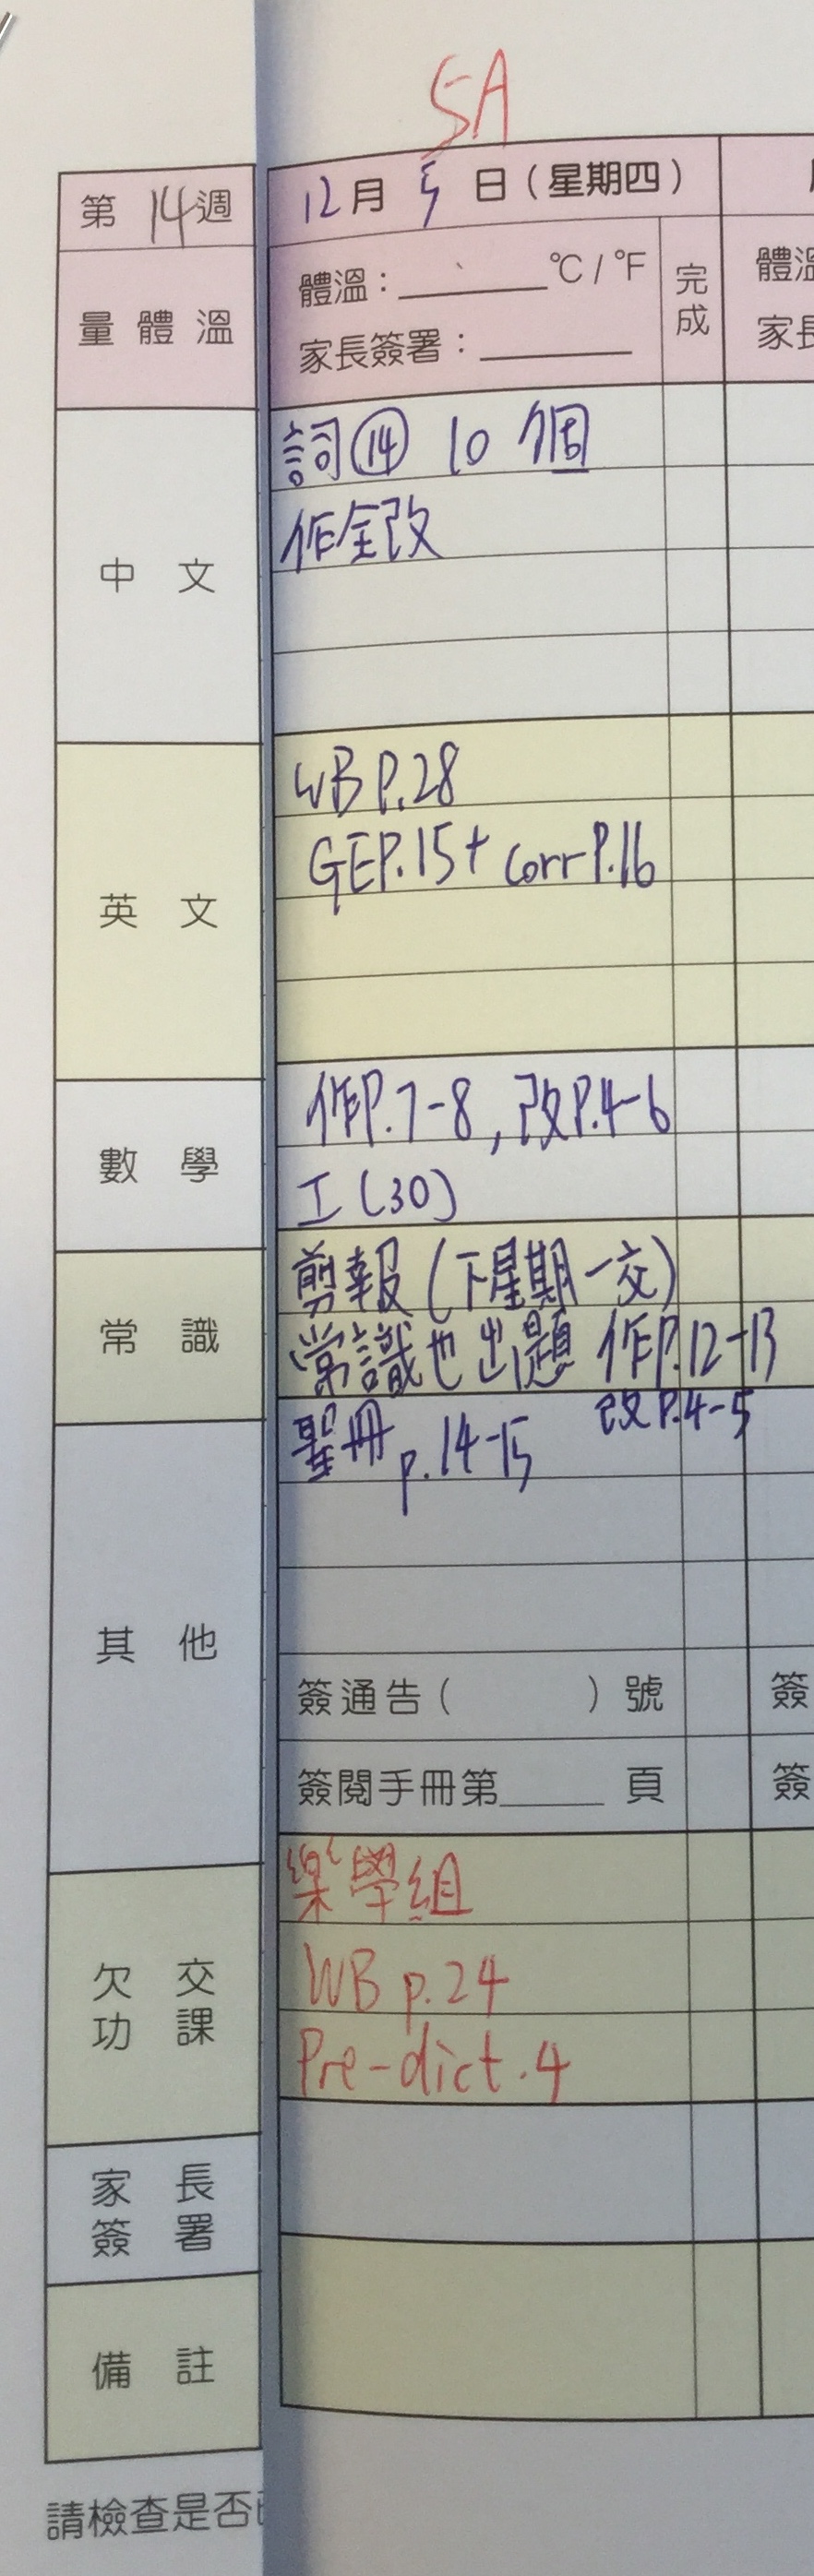 5A
第14週
12月5日(星期四)
量體溫
體溫：______°C/°F
家長簽署：______
完成
體溫
中文
詞⑭ 10個
作全改
英文
WB P.28
GE P.15+ corr P.16
數學
作P.7-8，改P.4-6
工(30)
常識
剪報(下星期一交)
常識也出題 作P.12-13
改P.4-5
其他
聖冊 p.14-15
簽通告( )號
簽
簽閱手冊第______頁
簽
欠交功課
樂學組
WB p.24
Pre-dict.4
家長簽署
備註
請檢查是否